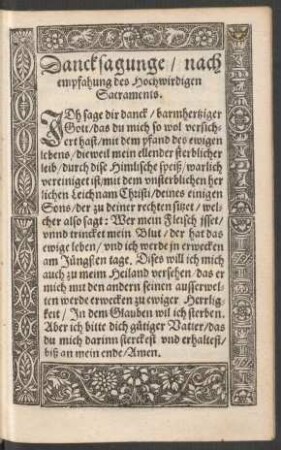 Dancksagunge / nach
empfahung des Hochwirdigen
Sacraments.
ICh sage dir danck / barmhertziger
Gott / das du mich so wol versich-
ert hast / mit dem pfand des ewigen
lebens / dieweil mein ellender sterblicher
leib / durch dise Himlische speiß / warlich
vereiniget ist / mit dem vnsterblichen her
lichen Leichnam Christi / deines einigen
Sons / der zu deiner rechten sitzet / wel-
cher also sagt: Wer mein Fleisch isset /
vnnd trincket mein Blut / der hat das
ewige leben / vnd ich werde jn erwecken
am Jüngsten tage. Dises will ich mich
auch zu meim Heiland versehen / das er
mich mit den andern seinen ausserwel-
ten werde erwecken zu ewiger Herrlig-
keit / In dem Glauben wil ich sterben.
Aber ich bitte dich gütiger Vatter / das
du mich darinn sterckest vnd erhaltest /
biß an mein ende / Amen.